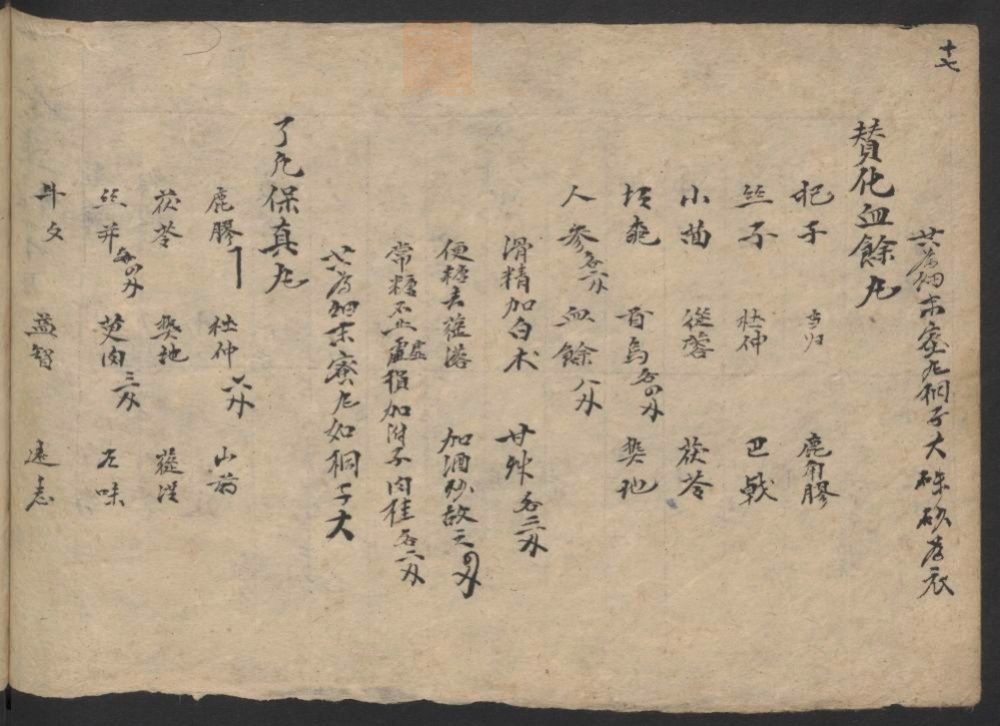 十七
共为細末蜜丸桐子大硃砂为衣
賛化血餘丸
杞子 当归 鹿角膠
丝子 杜仲 巴戟
小茴 從蓉 茯苓
核桃 首烏各四分 熟地
人参各六分 血餘八分
滑精加白术 甘 各三分
便糖去蓯蓉 加酒炒故之四分
常糖不止虛損加附子肉桂各二分
共为細末蜜丸如桐子大
了凡保真丸
鹿膠 杜仲六分 山药
茯苓 熟地 蓯蓉
丝并各四分 萸肉三分 五味
牛夕 益智 遠志